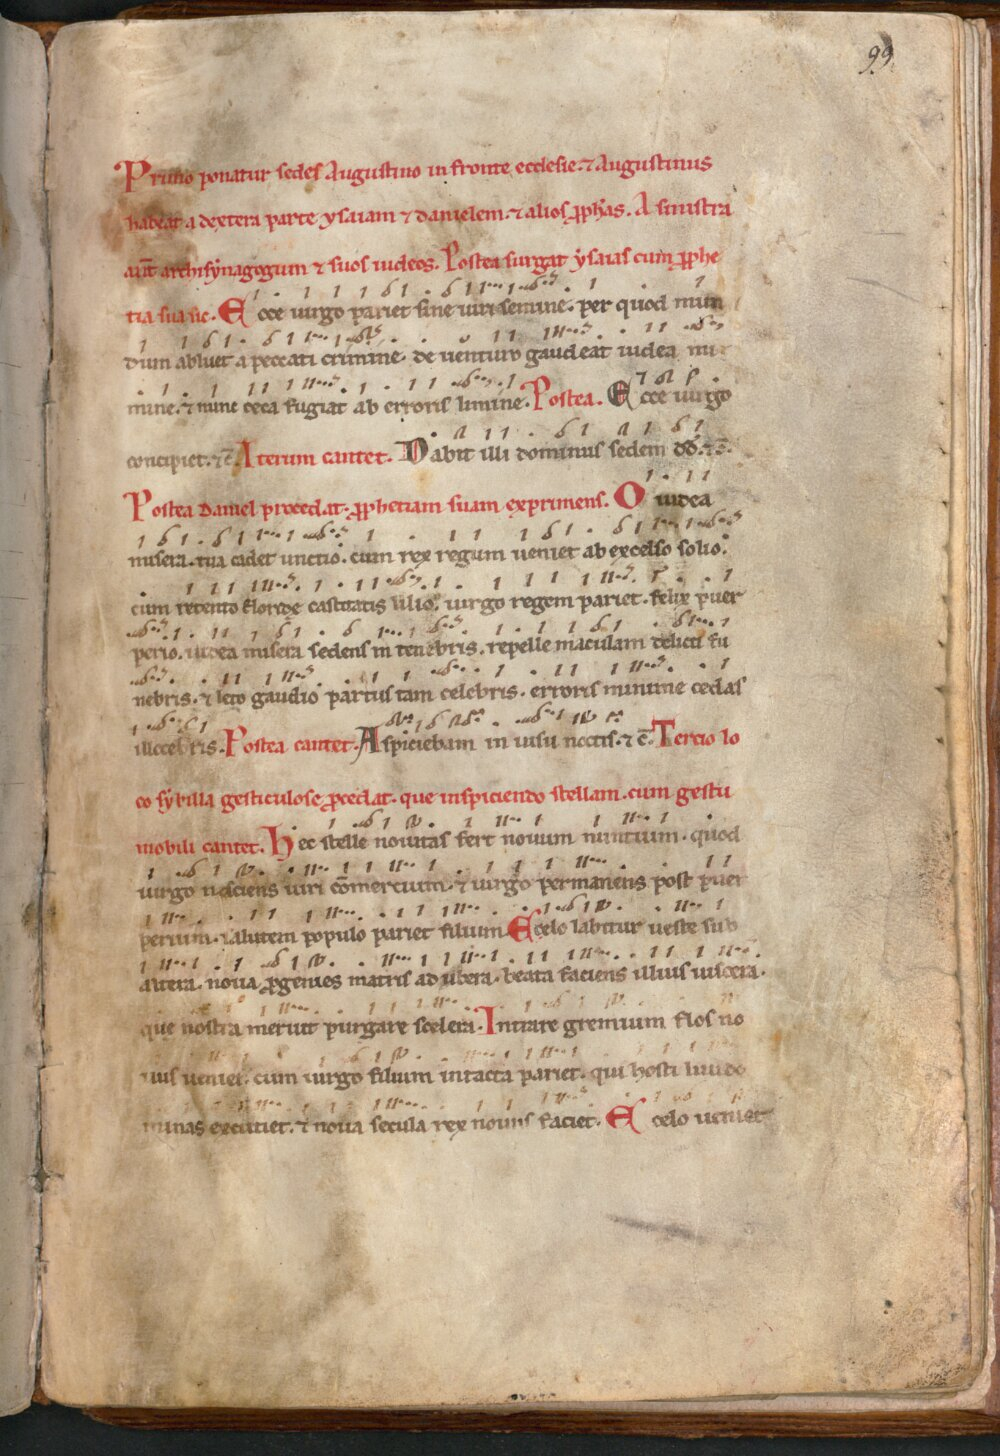 99
Primo ponatur sedes Augustino in fronte ecclesie. ⁊ Augustinus
habeat a dextera parte ysaiam ⁊ danielem ⁊ alios ꝓph̄as. A sinistra
aut̄ archisynagogum ⁊ suos iudeos. Postea surgat ysaias cum ꝓphe
tia sua sic. Ecce uirgo pariet sine uiri semine. per quod mun
dum abluet a peccati crimine. de uenturo gaudeat iudea nu
mine. ⁊ nunc ceca fugiat ab erroris limine. Postea. Ecce uirgo
concipiet. ⁊c̄. Iterum cantet. Dabit illi dominus sedem dd̄. ⁊c̄.
Postea daniel procedat. ꝓphetiam suam exprimens. O iudea
misera. tua cadet unctio. cum rex regum ueniet ab excelso solio.
cum retento floride castitatis lilio. uirgo regem pariet. felix puer
perio. iudea misera sedens in tenebris. repelle maculam delicti fu
nebris. ⁊ leto gaudio partus tam celebris. erroris minime cedas
illecebris. Postea cantet. Aspiciebam in uisu noctis. ⁊ c̄. Tercio lo
co sybilla gesticulose ꝓcedat. que inspiciendo stellam. cum gestu
mobili cantet. Hec stelle nouitas fert nouum nuntium. quod
uirgo nesciens uiri cōmercium. ⁊ uirgo permanens post puer
perium. salutem populo pariet filium. E celo labitur ueste sub
altera. noua ꝓgenies matris ad ubera. beata faciens illius uiscera.
que nostra meruit purgare scelera. Intrare gremium flos no
uus ueniet. cum uirgo filium intacta pariet. qui hosti liuido
minas excutiet. ⁊ noua secula rex nouus faciet. E celo ueniet